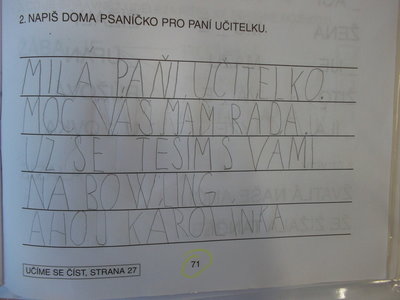 2. NAPIŠ DOMA PSANÍČKO PRO PANÍ UČITELKU.
MILÁ PAŇI UČITELKO,
MOC VÁS MÁM RÁDA
UŽ SE TĚŠÍM S VÁMI
NA BOWLING.
AHOJ KAROLINKA
UČÍME SE ČÍST, STRANA 27
71